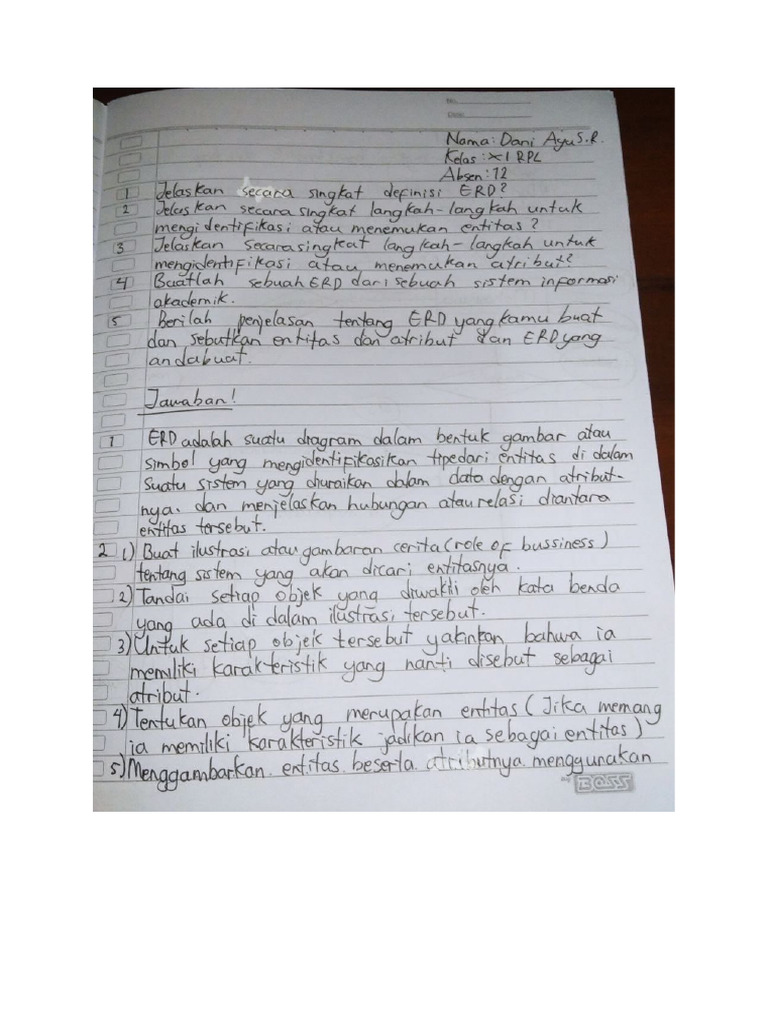 No.
Date
Nama: Dani Ayu S.R.
Kelas : XI RPL
Absen : 12
1 Jelaskan secara singkat definisi ERD?
2 Jelaskan secara singkat langkah-langkah untuk
mengidentifikasi atau menemukan entitas?
3 Jelaskan secara singkat langkah-langkah untuk
mengidentifikasi atau menemukan atribut?
4 Buatlah sebuah ERD dari sebuah sistem informasi
akademik.
5 Berilah penjelasan tentang ERD yang kamu buat
dan sebutkan entitas dan atribut dan ERD yang
anda buat.
Jawaban!
1 ERD adalah suatu diagram dalam bentuk gambar atau
simbol yang mengidentifikasikan tipe dari entitas di dalam
suatu sistem yang diuraikan dalam data dengan atribut-
nya. dan menjelaskan hubungan atau relasi diantara
entitas tersebut.
2 1) Buat ilustrasi atau gambaran cerita (role of bussiness)
tentang sistem yang akan dicari entitasnya.
2) Tandai setiap objek yang diwakili oleh kata benda
yang ada di dalam ilustrasi tersebut.
3) Untuk setiap objek tersebut yakinkan bahwa ia
memiliki karakteristik yang nanti disebut sebagai
atribut.
4) Tentukan objek yang merupakan entitas (Jika memang
ia memiliki karakteristik jadikan ia sebagai entitas)
5) Menggambarkan entitas beserta atributnya menggunakan
BOSS